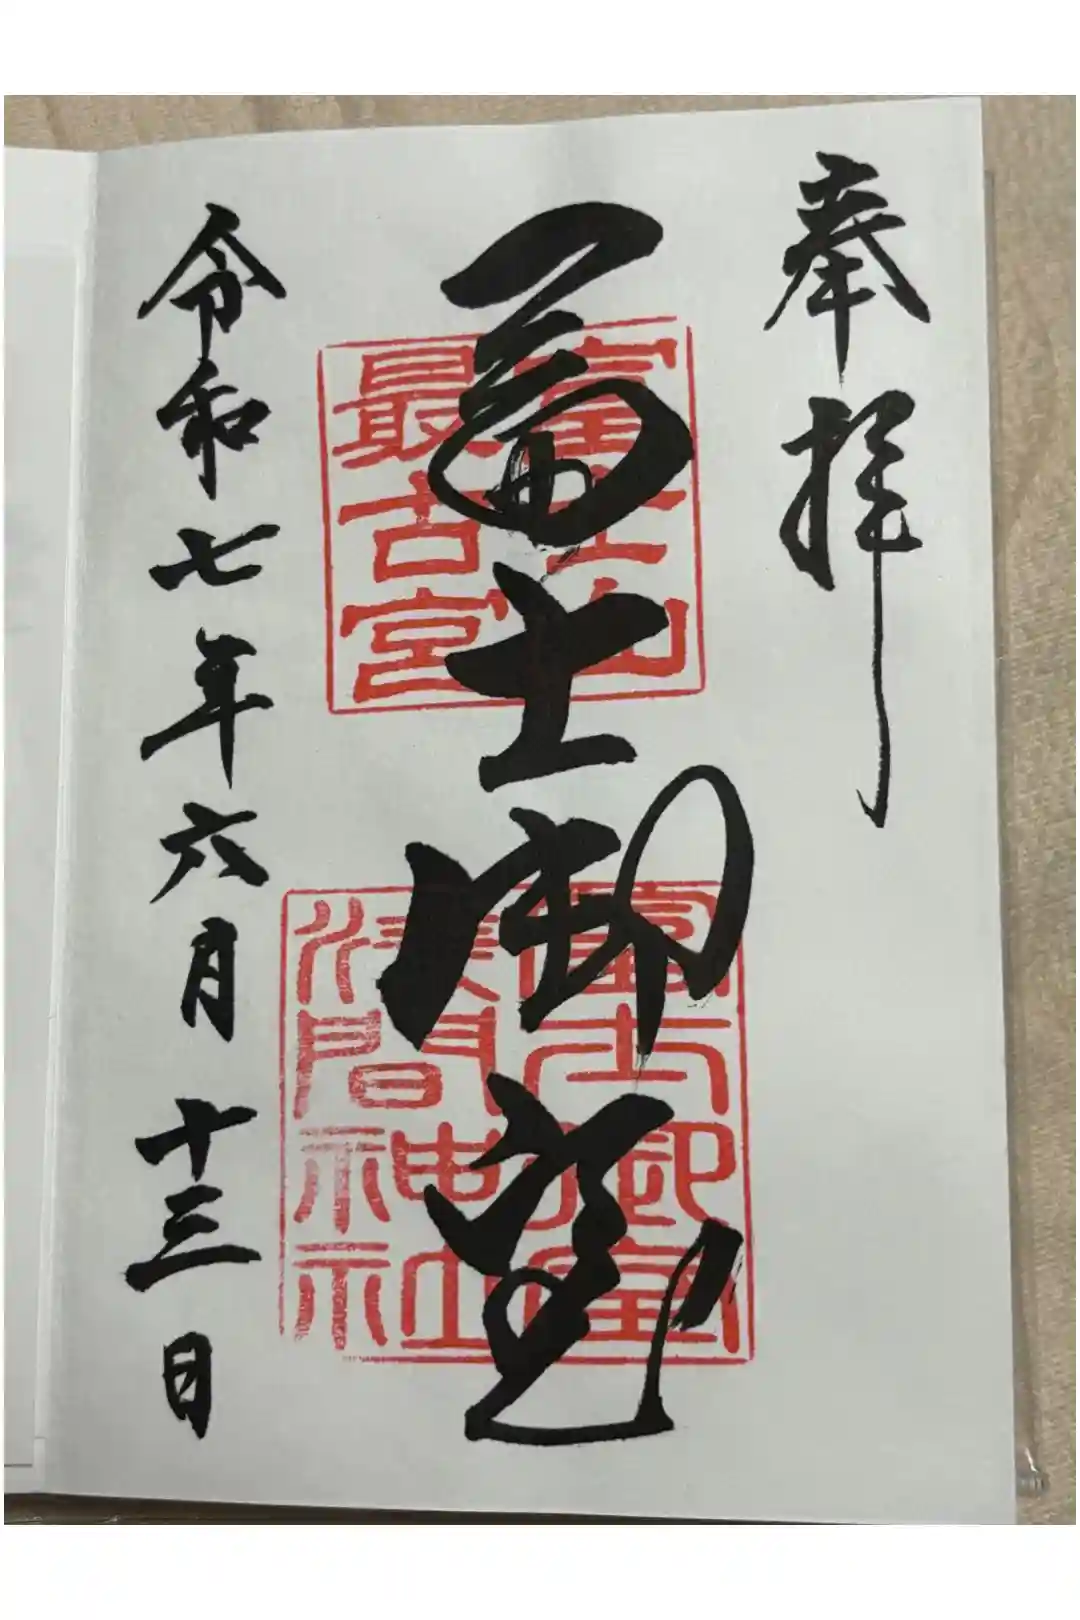 奉拝
富士山
最古宮
冨士御室
富士御室
浅間神社
令和七年六月十三日